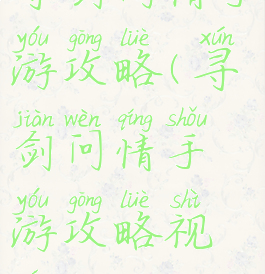 yóu gōng lüè xún
游攻略(寻
jiàn wèn qíng shǒu
剑问情手
yóu gōng lüè shì
游攻略视